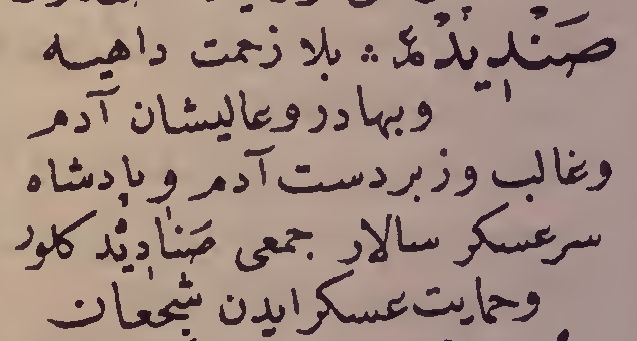 صَنْدِيدْ ع ؞ بلا زحمت داهيه
وبهادر وعاليشان آدم
وغالب وزبردست آدم وپادشاه
سرعسكر سالار جمعى صَنَادِيْد كلور
وحمايت عسكر ايدن شجعان